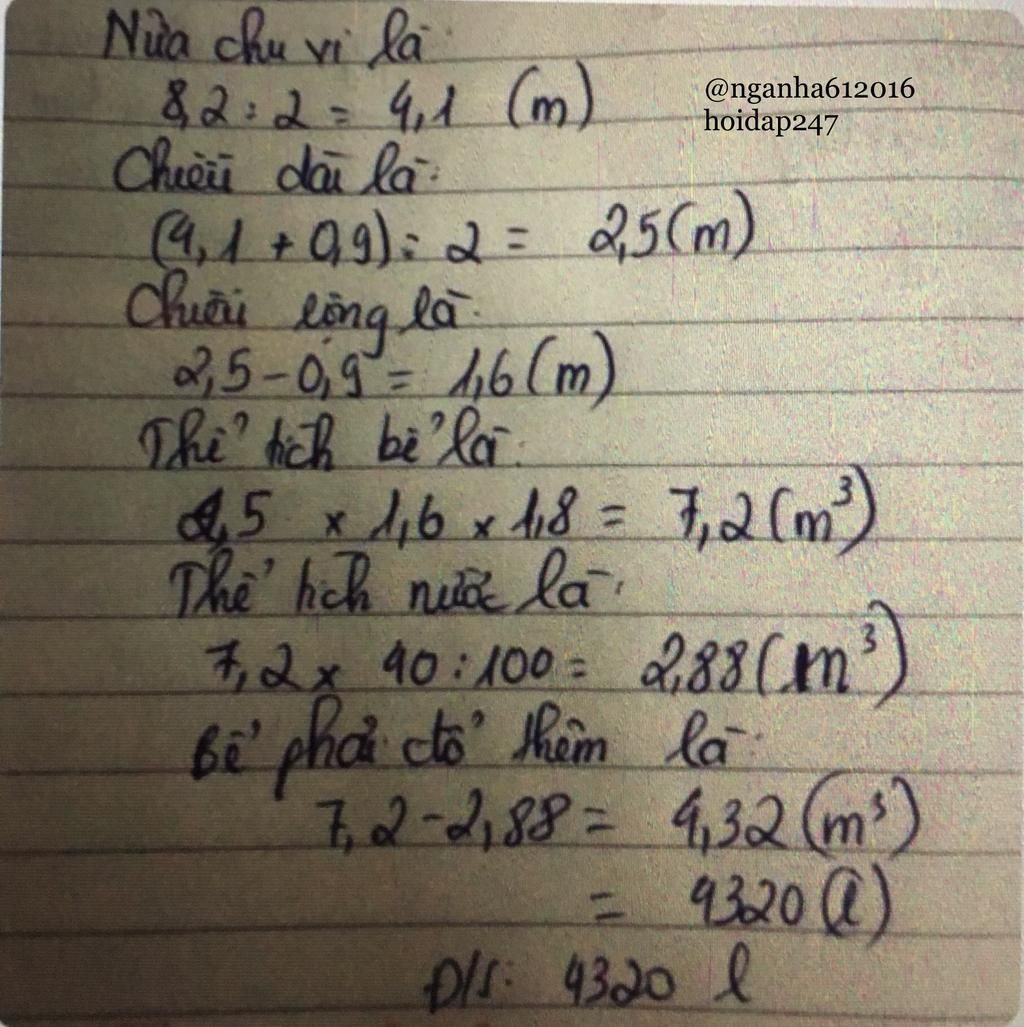 Nửa chu vi là
8,2 : 2 = 4,1 (m)
@nganha612016
hoidap247
Chiều dài là:
(4,1 + 0,9) : 2 = 2,5 (m)
Chiều rộng là:
2,5 - 0,9 = 1,6 (m)
Thể tích bể là:
2,5 x 1,6 x 1,8 = 7,2 (m³)
Thể tích nước là:
7,2 x 40 : 100 = 2,88 (m³)
Bể phải đổ thêm là:
7,2 - 2,88 = 4,32 (m³)
= 4320 (l)
Đ/S: 4320 l